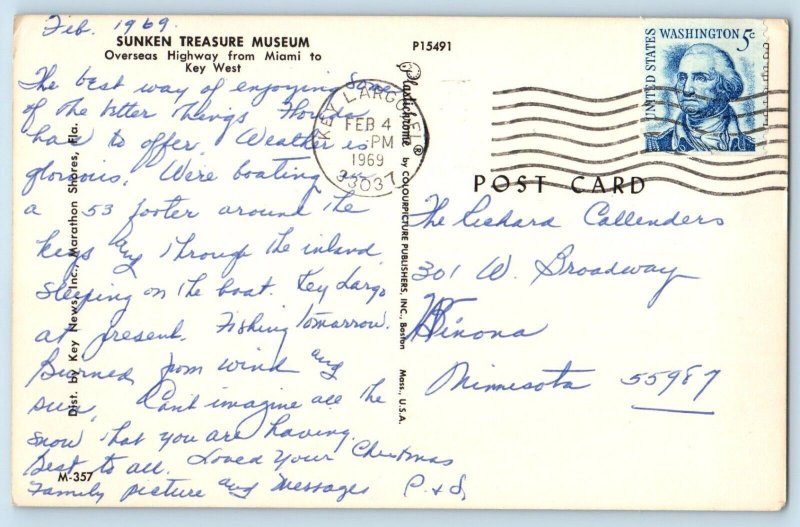 Feb. 1969.
SUNKEN TREASURE MUSEUM
Overseas Highway from Miami to
Key West
P15491
The best way of enjoying some
of the better things Florida
has to offer. Weather is
glorious. Were boating
a 53 footer around the
keys and through the inland
sleeping on the boat. Key Largo
at present. Fishing tomorrow.
Burned from wind and
sun. Cant imagine all the
snow that you are having.
Best to all. Loved your Christmas
Family picture and messages P. & S.
M-357
Dist. by Key News, Inc., Marathon Shores, Fla.
Plastichrome ® by COLOURPICTURE PUBLISHERS, INC., Boston Mass., U.S.A.
KEY LARGO, FL
FEB 4
PM
1969
33037
UNITED STATES
WASHINGTON 5c
POST CARD
The Richard Callenders
301 W. Broadway
Winona
Minnesota 55987